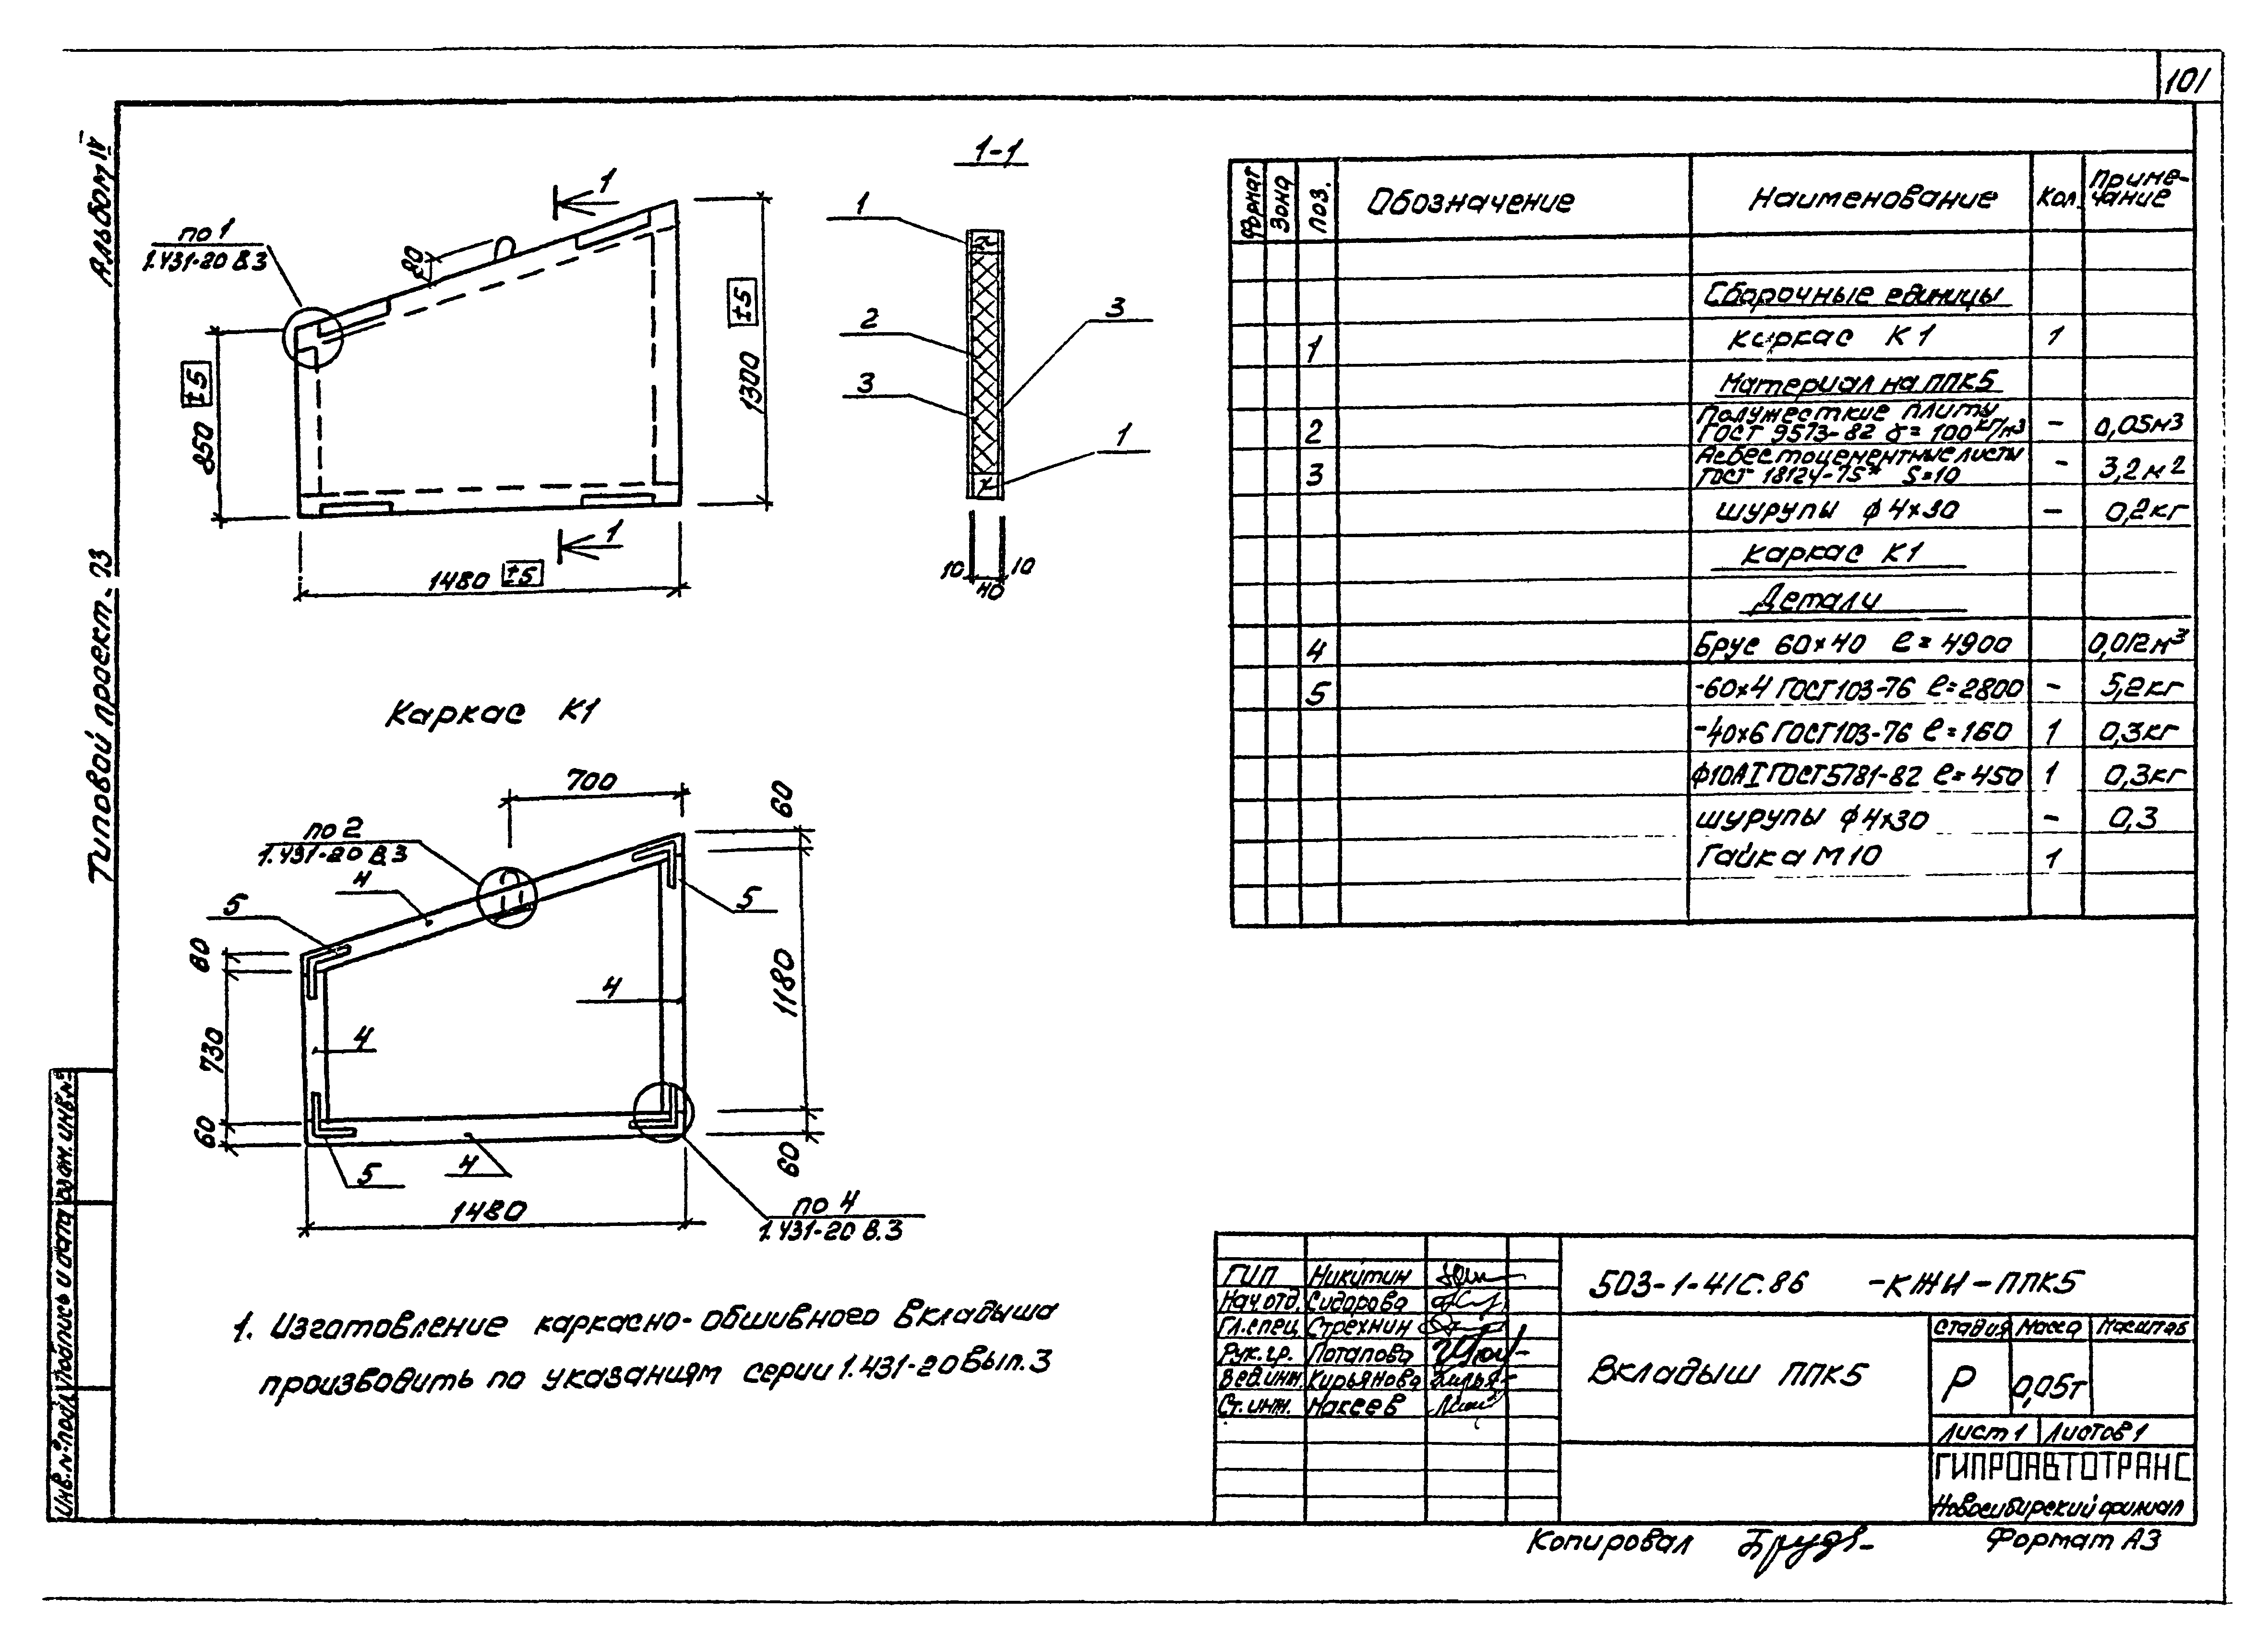 101
Альбом IV
Типовой проект.
1-1
1
по 1
1.431-20 В.3
80
850 ±5
1300 ±5
1480 ±5
1
1
2
3
3
1
10
40
10
Каркас К1
700
60
по 2
1.431-20 В.3
4
5
5
80
730
60
4
4
1180
60
5
4
1480
по 4
1.431-20 В.3
1. Изготовление каркасно-обшивного вкладыша
производить по указаниям серии 1.431-20 Вып.3
Формат
Зона
Поз.
Обозначение
Наименование
Кол.
Приме-
чание
Сборочные единицы
1 каркас К1 1
Материал на ППК5
Полужесткие плиты
2 ГОСТ 9573-82 γ=100 кг/м3 – 0,05м3
Асбестоцементные листы
3 ГОСТ 18124-75* S=10 – 3,2м2
шурупы ф4х30 – 0,2кг
каркас К1
Детали
4 Брус 60х40 ℓ=4900 0,012м3
5 -60х4 ГОСТ103-76 ℓ=2800 – 5,2кг
-40х6 ГОСТ103-76 ℓ=160 1 0,3кг
ф10АI ГОСТ5781-82 ℓ=450 1 0,3кг
шурупы ф4х30 – 0,3
Гайка М10 1
ГИП Никитин
Нач.отд. Сидорова
Гл.спец. Стрехнин
Рук.гр. Потапова
Вед.инж. Кирьянова
Ст.инж. Макеев
503-1-41С.86 -КЖИ-ППК5
Вкладыш ППК5
Стадия Масса Масштаб
Р 0,05т
Лист 1 Листов 1
ГИПРОАВТОТРАНС
Новосибирский филиал
Копировал
Формат А3
Взам. инв.№
Подпись и дата
Инв.№подл.